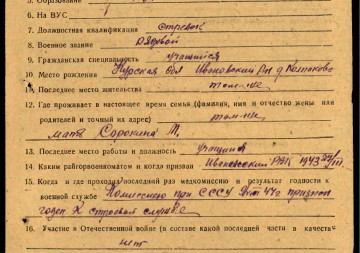 5. Образование
6. На ВУС 1
7. Должностная квалификация стрелок
8. Военное звание рядовой
9. Гражданская специальность учащийся
10. Место рождения Курская обл Ивановский р-н д
11. Последнее место жительства там-же
12. Где проживает в настоящее время семья (фамилия, имя и отчество жены или
родителей и точный их адрес) там-же
мать Сорокина М.
13. Последнее место работы и должность учащийся
14. Каким райгорвоенкоматом и когда призван РВК 1943
15. Когда и где проходил последний раз медкомиссию и результат годности к
военной службе Комиссией при 44г признан
годен к строевой службе
16. Участие в Отечественной войне (в составе какой последней части в качеств
нет